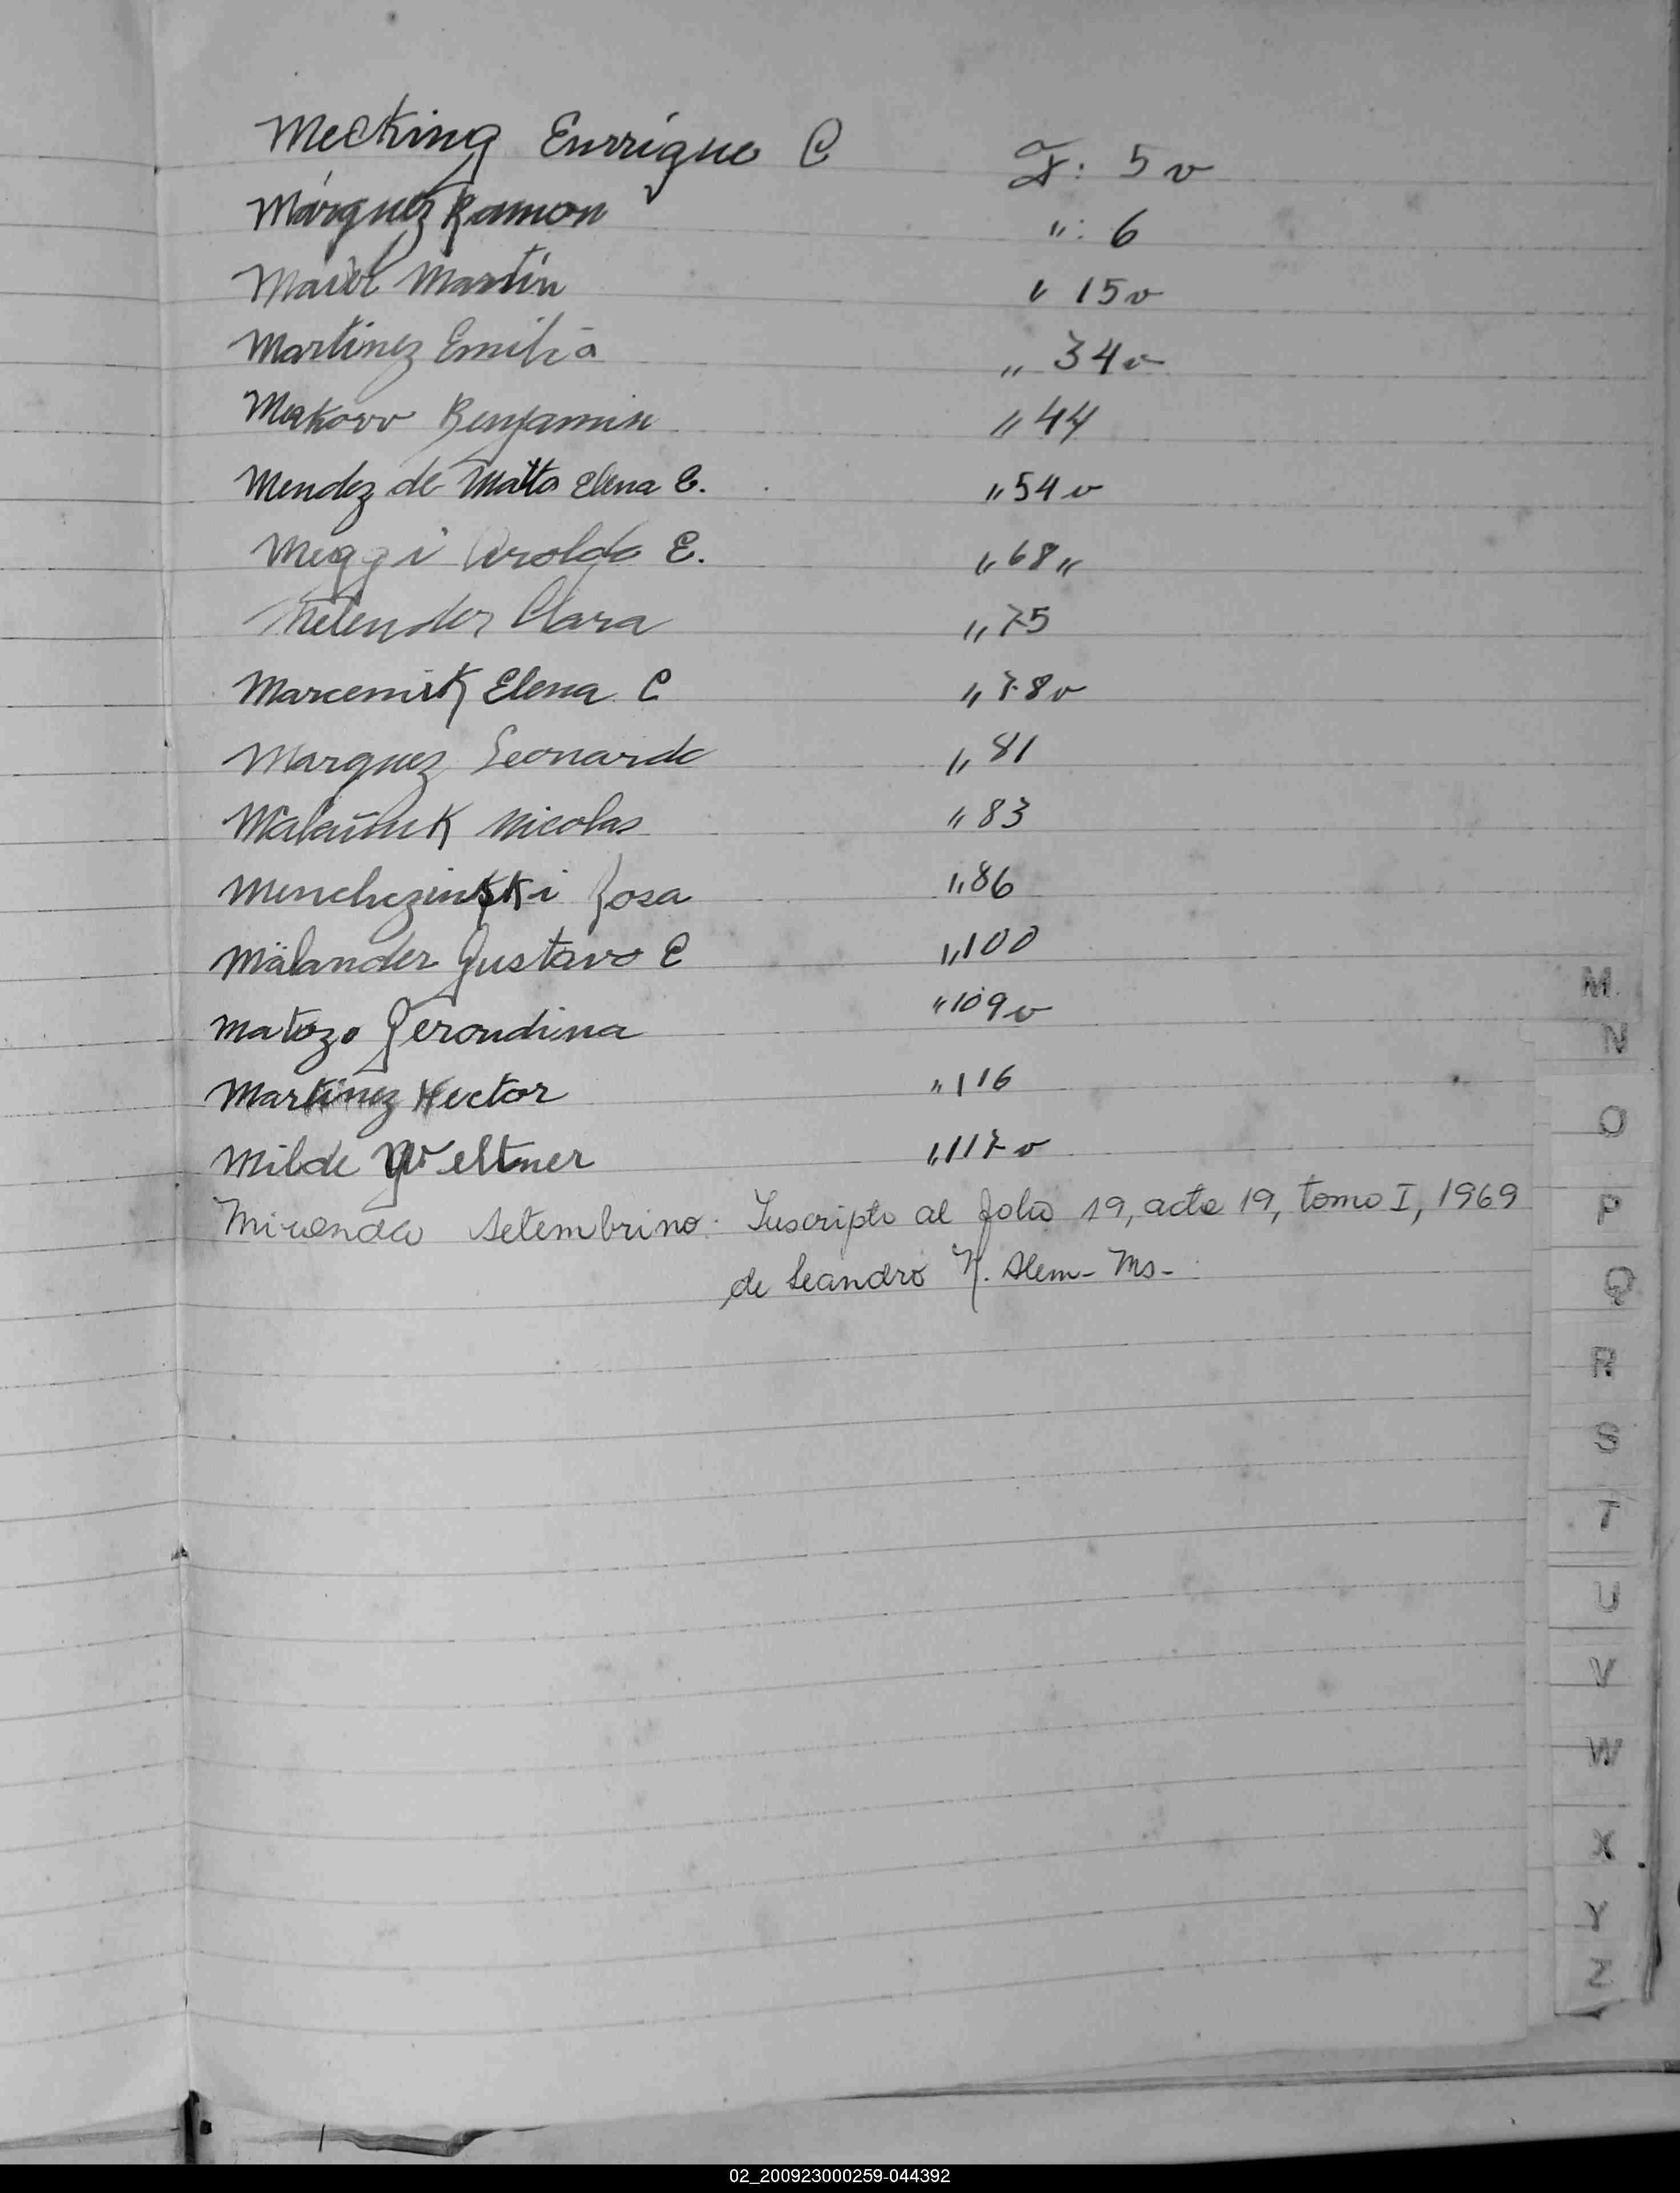 Mecking Enrrique C F: 5 v
Márquez Ramon ": 6
Maier Martín " 15 v
Martinez Emilia " 34 v
Benjamin " 44
Mendez de Matto Elena E. " 54 v
Meggi Aroldo E. " 68 "
Melender Clara " 75
Elena C " 78 v
Marquez Leonardo " 81
Nicolas " 83
Menchezinski Rosa " 86
Mälander Gustavo C " 100
Matozo Gerondina " 109 v
Martinez Hector " 116
Milde Weltner " 117 v
Miranda Setembrino: Inscripto al folio 19, acta 19, tomo I, 1969
de Leandro N. Alem - Ms -
M
N
O
P
Q
R
S
T
U
V
W
X
Y
Z
02_200923000259-044392